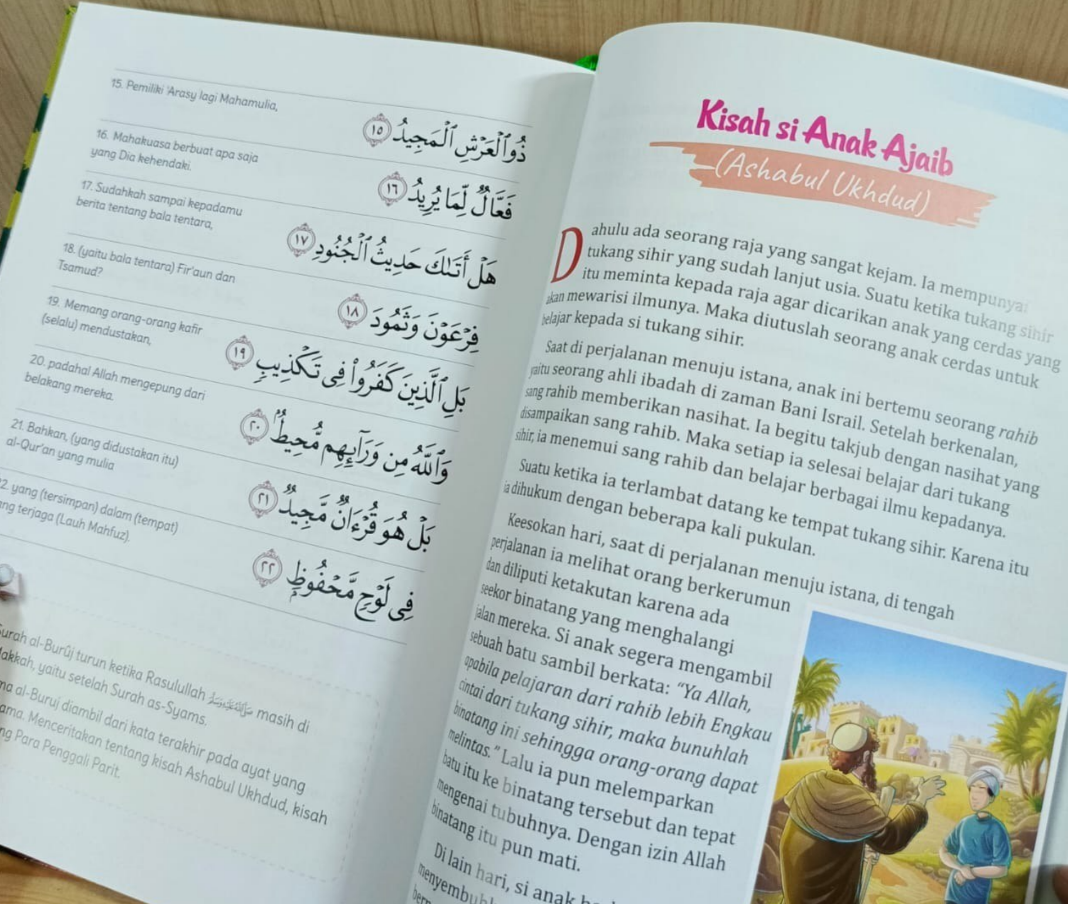 15. Pemiliki 'Arasy lagi Mahamulia,
ذُو ٱلْعَرْشِ ٱلْمَجِيدُ ١٥
16. Mahakuasa berbuat apa saja
yang Dia kehendaki.
فَعَّالٌ لِّمَا يُرِيدُ ١٦
17. Sudahkah sampai kepadamu
berita tentang bala tentara,
هَلْ أَتَىٰكَ حَدِيثُ ٱلْجُنُودِ ١٧
18. (yaitu bala tentara) Fir'aun dan
Tsamud?
فِرْعَوْنَ وَثَمُودَ ١٨
19. Memang orang-orang kafir
(selalu) mendustakan,
بَلِ ٱلَّذِينَ كَفَرُوا۟ فِى تَكْذِيبٍ ١٩
20. padahal Allah mengepung dari
belakang mereka.
وَٱللَّهُ مِن وَرَآئِهِم مُّحِيطٌۢ ٢٠
21. Bahkan, (yang didustakan itu)
al-Qur'an yang mulia
بَلْ هُوَ قُرْءَانٌ مَّجِيدٌ ٢١
2. yang (tersimpan) dalam (tempat)
ng terjaga (Lauh Mahfuz).
فِى لَوْحٍ مَّحْفُوظٍۭ ٢٢
Surah al-Burûj turun ketika Rasulullah ﷺ masih di
akkah, yaitu setelah Surah as-Syams.
ma al-Buruj diambil dari kata terakhir pada ayat yang
ama. Menceritakan tentang kisah Ashabul Ukhdud, kisah
ng Para Penggali Parit.
Kisah si Anak Ajaib
(Ashabul Ukhdud)
Dahulu ada seorang raja yang sangat kejam. Ia mempunyai
tukang sihir yang sudah lanjut usia. Suatu ketika tukang sihir
itu meminta kepada raja agar dicarikan anak yang cerdas yang
akan mewarisi ilmunya. Maka diutuslah seorang anak cerdas untuk
belajar kepada si tukang sihir.
Saat di perjalanan menuju istana, anak ini bertemu seorang rahib
yaitu seorang ahli ibadah di zaman Bani Israil. Setelah berkenalan,
sang rahib memberikan nasihat. Ia begitu takjub dengan nasihat yang
disampaikan sang rahib. Maka setiap ia selesai belajar dari tukang
sihir, ia menemui sang rahib dan belajar berbagai ilmu kepadanya.
Suatu ketika ia terlambat datang ke tempat tukang sihir. Karena itu
ia dihukum dengan beberapa kali pukulan.
Keesokan hari, saat di perjalanan menuju istana, di tengah
perjalanan ia melihat orang berkerumun
dan diliputi ketakutan karena ada
seekor binatang yang menghalangi
jalan mereka. Si anak segera mengambil
sebuah batu sambil berkata: "Ya Allah,
apabila pelajaran dari rahib lebih Engkau
cintai dari tukang sihir, maka bunuhlah
binatang ini sehingga orang-orang dapat
melintas." Lalu ia pun melemparkan
batu itu ke binatang tersebut dan tepat
mengenai tubuhnya. Dengan izin Allah
binatang itu pun mati.
Di lain hari, si anak